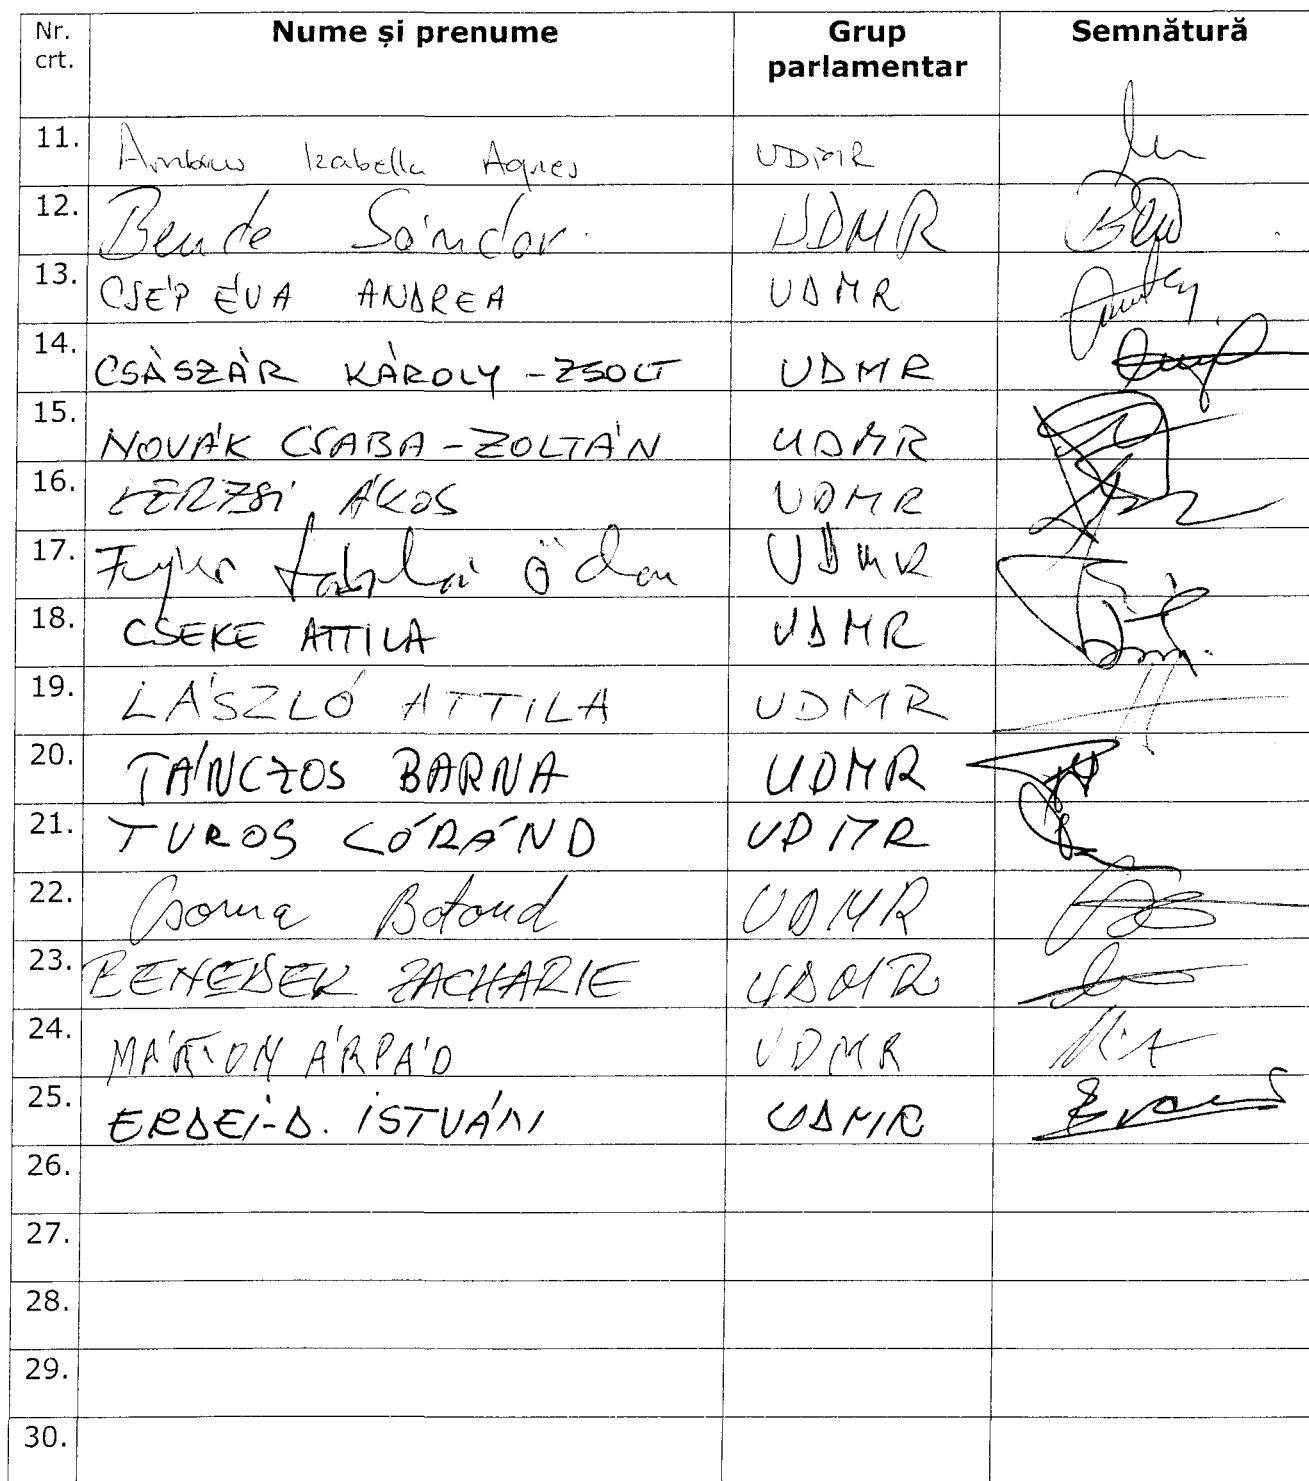 Nr. crt. Nume și prenume Grup parlamentar Semnătură
11. Ambrus Izabella Agnes UDMR
12. Bende Sándor UDMR
13. CSÉP ÉVA ANDREA UDMR
14. CSÁSZÁR KÁROLY-ZSOLT UDMR
15. NOVÁK CSABA-ZOLTÁN UDMR
16. DERZSI ÁKOS UDMR
17. Fejér László Ödön UDMR
18. CSEKE ATTILA UDMR
19. LÁSZLÓ ATTILA UDMR
20. TÁNCZOS BARNA UDMR
21. TUROS LÓRÁND UDMR
22. Csoma Botond UDMR
23. BENEDEK ZACHARIE UDMR
24. MÁRTON ÁRPÁD UDMR
25. ERDEI-D. ISTVÁN UDMR
26.
27.
28.
29.
30.